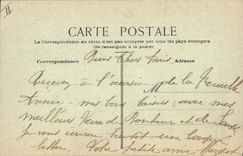 II
CARTE POSTALE
La Correspondance au recto n'est pas acceptée par tous les pays étrangers
(Se renseigner à la poste)
Correspondance Adresse
Bien Chers Amis
Recevez à l'occasion de la Nouvelle
Année nos bons baisers avec nos
meilleurs Vœux de Bonheur et de Santé
Je vous écrirai bientôt une longue
lettre. Votre petite amie